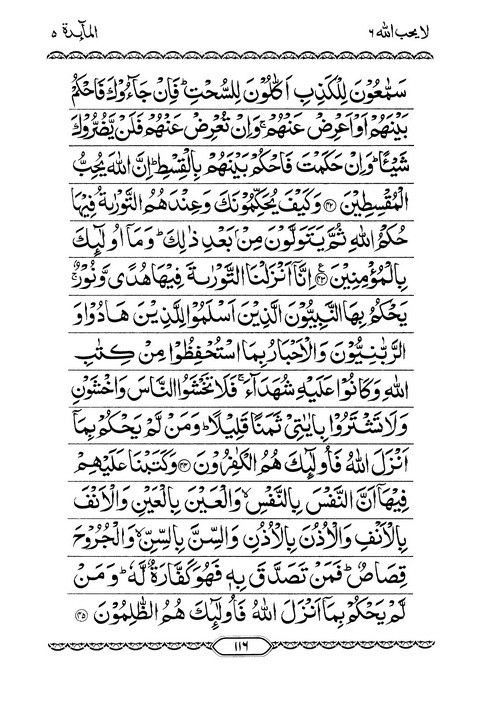 لا يحب الله ٦ المآىِٕدة ٥
سَمّٰعُوْنَ لِلْكَذِبِ اَكّٰلُوْنَ لِلسُّحْتِؕ فَاِنْ جَآءُوْكَ فَاحْكُمْ
بَيْنَهُمْ اَوْ اَعْرِضْ عَنْهُمْۚ وَاِنْ تُعْرِضْ عَنْهُمْ فَلَنْ يَّضُرُّوْكَ
شَيْـًٔاؕ وَاِنْ حَكَمْتَ فَاحْكُمْ بَيْنَهُمْ بِالْقِسْطِؕ اِنَّ اللّٰهَ يُحِبُّ
الْمُقْسِطِيْنَ ﴿۴۲﴾ وَكَيْفَ يُحَكِّمُوْنَكَ وَعِنْدَهُمُ التَّوْرٰىةُ فِيْهَا
حُكْمُ اللّٰهِ ثُمَّ يَتَوَلَّوْنَ مِنْۢ بَعْدِ ذٰلِكَؕ وَمَآ اُولٰٓىِٕكَ
بِالْمُؤْمِنِيْنَ ﴿۴۳﴾ اِنَّآ اَنْزَلْنَا التَّوْرٰىةَ فِيْهَا هُدًى وَّنُوْرٌۚ
يَحْكُمُ بِهَا النَّبِيُّوْنَ الَّذِيْنَ اَسْلَمُوْا لِلَّذِيْنَ هَادُوْا وَ
الرَّبّٰنِيُّوْنَ وَالْاَحْبَارُ بِمَا اسْتُحْفِظُوْا مِنْ كِتٰبِ
اللّٰهِ وَكَانُوْا عَلَيْهِ شُهَدَآءَۚ فَلَا تَخْشَوُا النَّاسَ وَاخْشَوْنِ
وَلَا تَشْتَرُوْا بِاٰيٰتِيْ ثَمَنًا قَلِيْلًاؕ وَمَنْ لَّمْ يَحْكُمْ بِمَآ
اَنْزَلَ اللّٰهُ فَاُولٰٓىِٕكَ هُمُ الْكٰفِرُوْنَ ﴿۴۴﴾ وَكَتَبْنَا عَلَيْهِمْ
فِيْهَآ اَنَّ النَّفْسَ بِالنَّفْسِۙ وَالْعَيْنَ بِالْعَيْنِ وَالْاَنْفَ
بِالْاَنْفِ وَالْاُذُنَ بِالْاُذُنِ وَالسِّنَّ بِالسِّنِّۙ وَالْجُرُوْحَ
قِصَاصٌؕ فَمَنْ تَصَدَّقَ بِهٖ فَهُوَ كَفَّارَةٌ لَّهٗؕ وَمَنْ
لَّمْ يَحْكُمْ بِمَآ اَنْزَلَ اللّٰهُ فَاُولٰٓىِٕكَ هُمُ الظّٰلِمُوْنَ ﴿۴۵﴾
١١٦